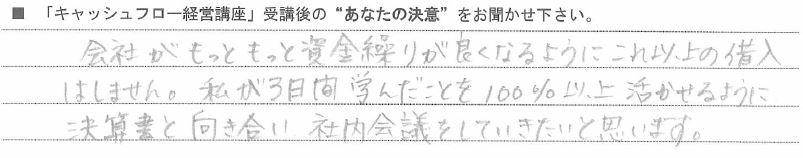 ■ 「キャッシュフロー経営講座」受講後の“あなたの決意”をお聞かせ下さい。
会社がもっともっと資金繰りが良くなるようにこれ以上の借入
はしません。私が3日間学んだことを100%以上活かせるように
決算書と向き合い 社内会議をしていきたいと思います。